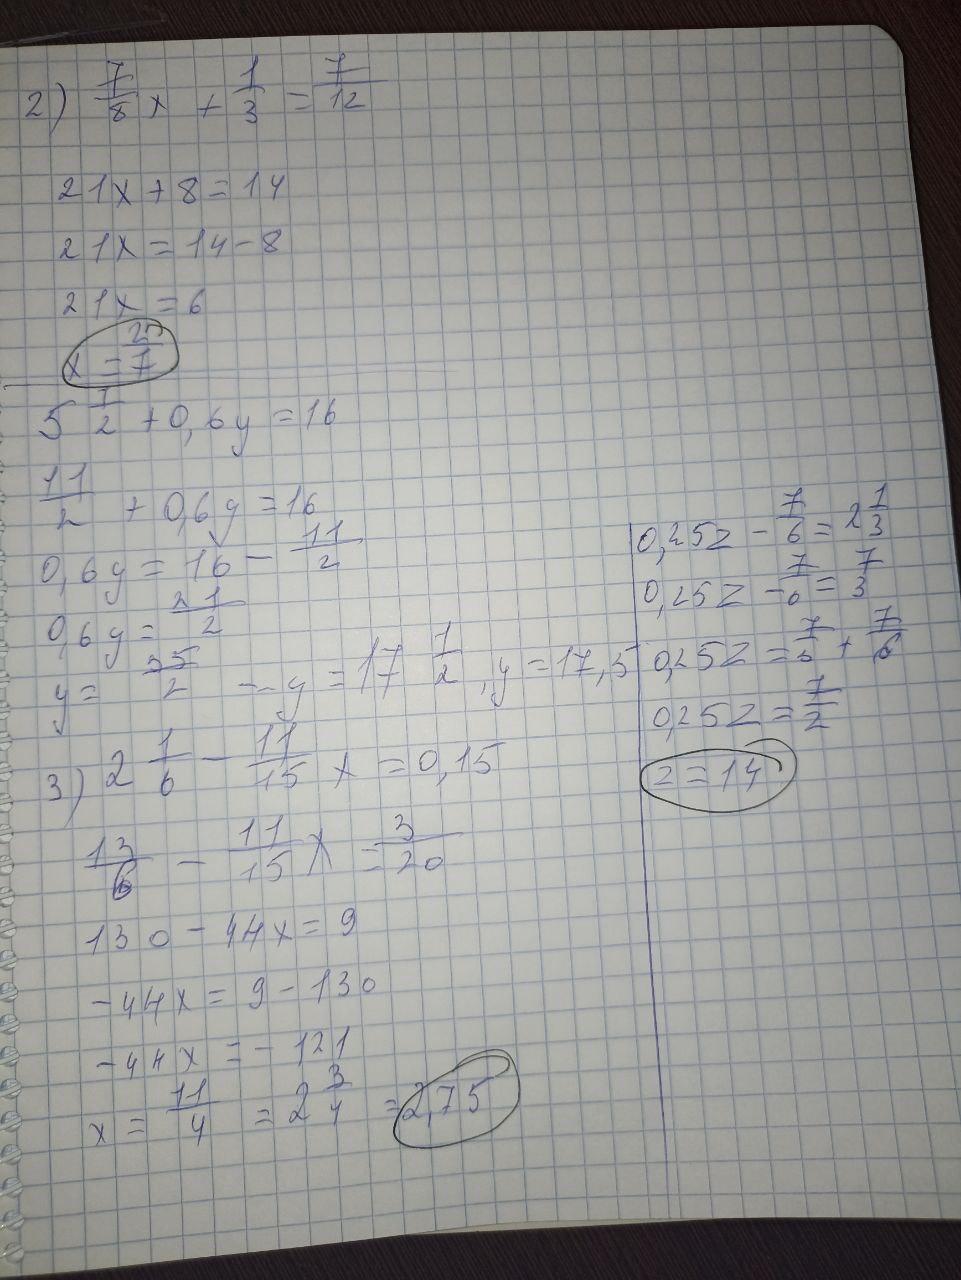 2) 7/8 x + 1/3 = 7/12
21x + 8 = 14
21x = 14 - 8
21x = 6
x = 2/7
5 1/2 + 0,6y = 16
11/2 + 0,6y = 16
0,6y = 16 - 11/2
0,6y = 21/2
y = 35/2 - y = 17 1/2, y = 17,5
3) 2 1/6 - 11/15 x = 0,15
13/6 - 11/15 x = 3/20
130 - 44x = 9
-44x = 9 - 130
-44x = -121
x = 11/4 = 2 3/4 = 2,75
0,25z - 7/6 = 2 1/3
0,25z - 7/6 = 7/3
0,25z = 7/3 + 7/6
0,25z = 7/2
z = 14